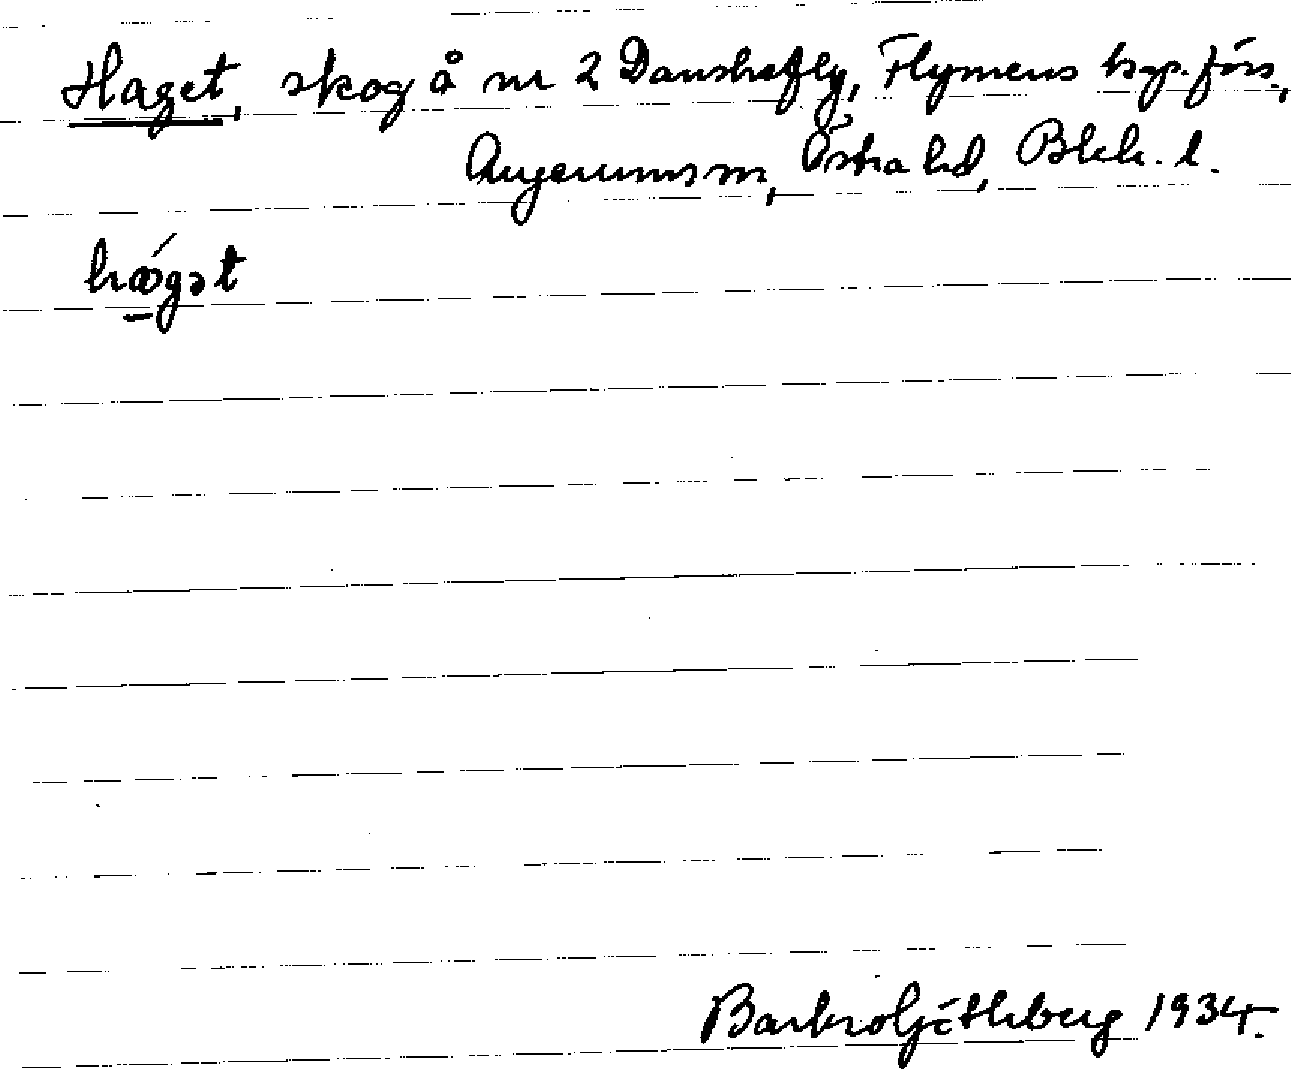 Haget, skog å nr 2 Danskafly, Flymens kap.förs.,
Augerums sn, Östra hd, Blek. l.
hǽgət
Barbro Götherberg 1934.